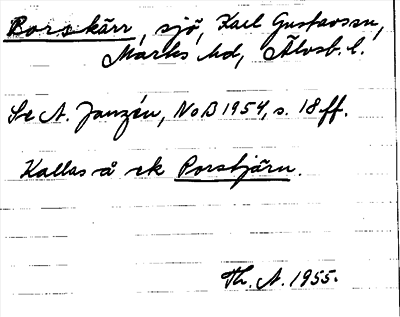 Borskärr, sjö, Karl Gustavssn,
Marks hd, Älvsb. l.
Se A. Janzén, NoB 1954, s. 18 ff.
Kallas å ek Porstjärn.
Th. A. 1955.